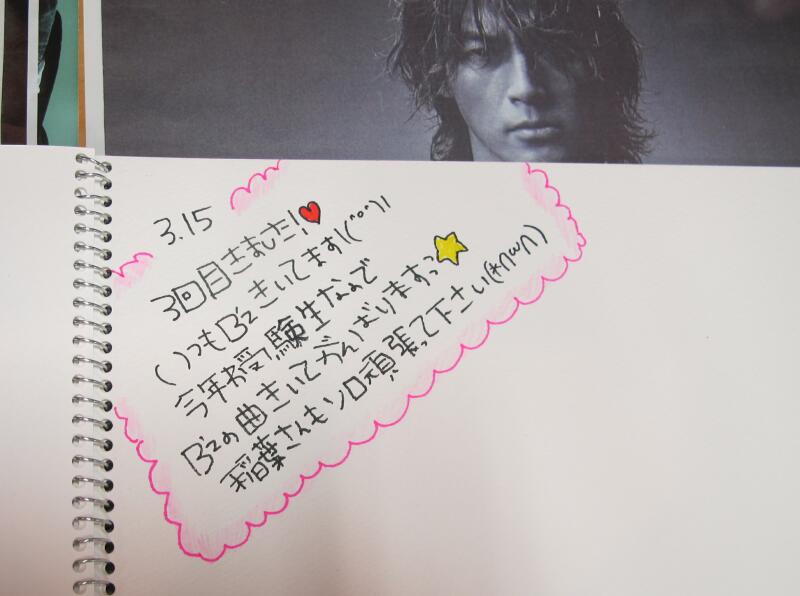 3.15
3回目きました!♥
いつもB'zきいてます!(^o^)!
今年お受験生なので
B'zの曲きいてがんばりますっ★
稲葉さんもソロ頑張って下さい(*∩ω∩)